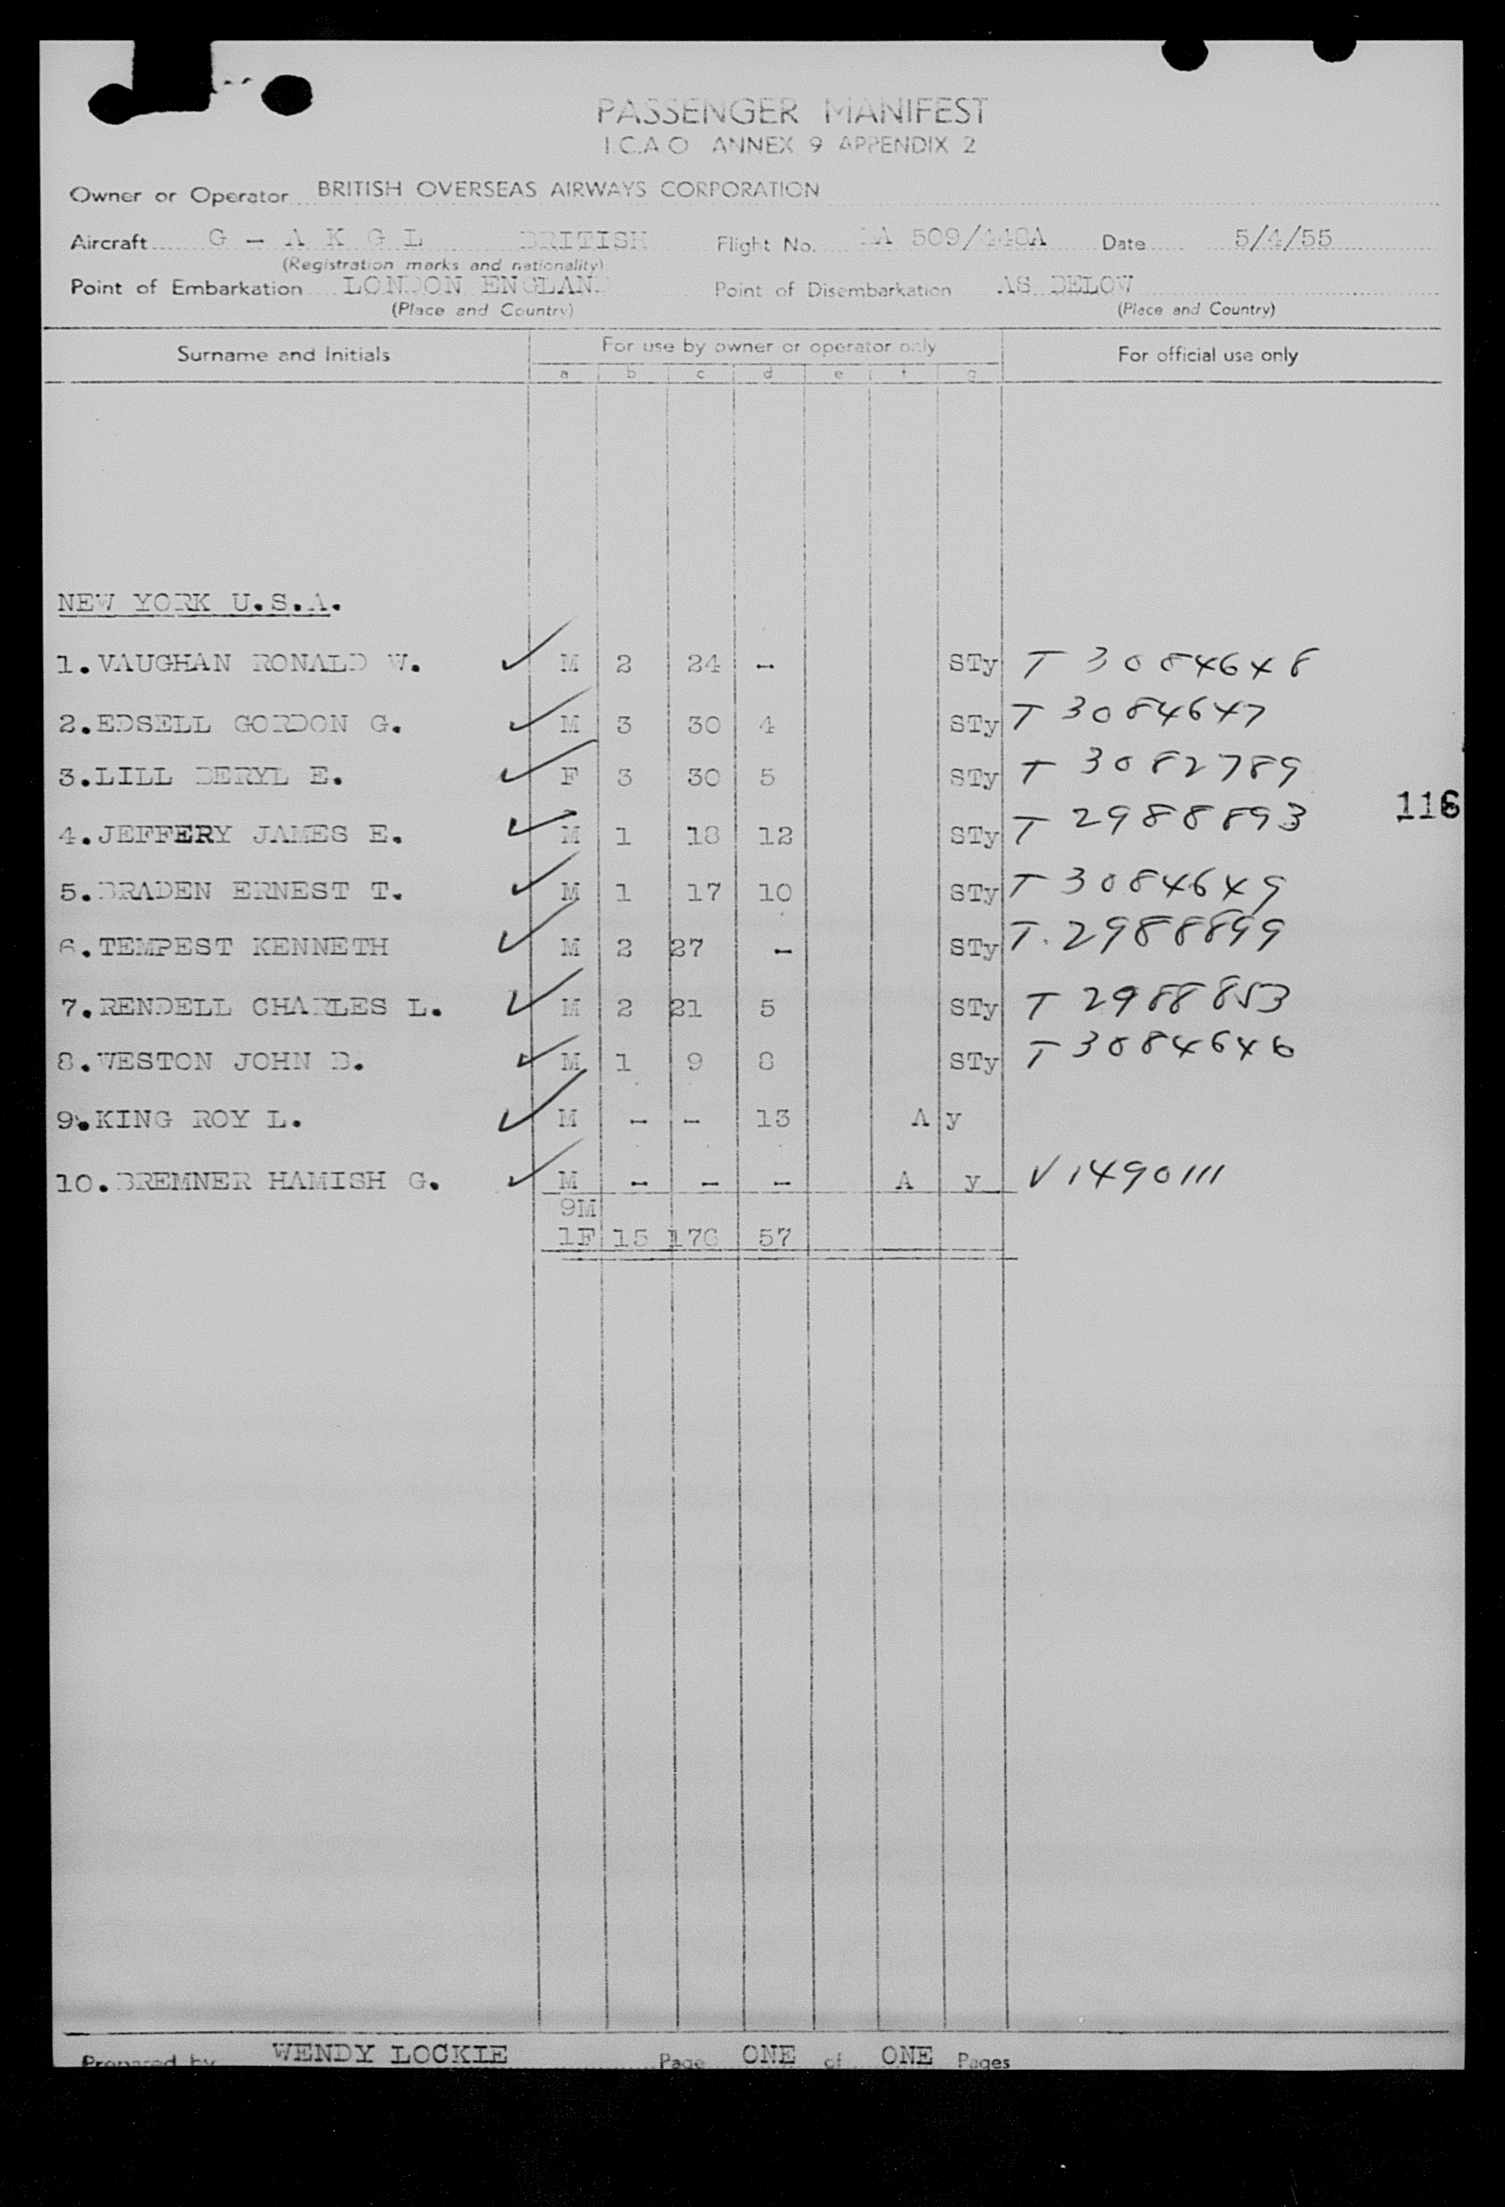 PASSENGER MANIFEST
I.C.A.O ANNEX 9 APPENDIX 2
Owner or Operator BRITISH OVERSEAS AIRWAYS CORPORATION
Aircraft G - A K G L BRITISH Flight No. BA 509/448A Date 5/4/55
(Registration marks and nationality)
Point of Embarkation LONDON ENGLAND Point of Disembarkation AS BELOW
(Place and Country) (Place and Country)
Surname and Initials For use by owner or operator only For official use only
a b c d e f g
NEW YORK U.S.A.
1. VAUGHAN RONALD W. M 2 24 - STy T 3084648
2. EDSELL GORDON G. M 3 30 4 STy T 3084647
3. LILL BERYL E. F 3 30 5 STy T 3082789
116
4. JEFFERY JAMES E. M 1 18 12 STy T 2988893
5. BRADEN ERNEST T. M 1 17 10 STy T 3084649
6. TEMPEST KENNETH M 2 27 - STy T. 2988899
7. RENDELL CHARLES L. M 2 21 5 STy T 2988853
8. WESTON JOHN B. M 1 9 8 STy T 3084646
9. KING ROY L. M - - 13 A y
10. BREMNER HAMISH G. M - - - A y V 1490111
9M
1F 15 176 57
Prepared by WENDY LOCKIE Page ONE of ONE Pages